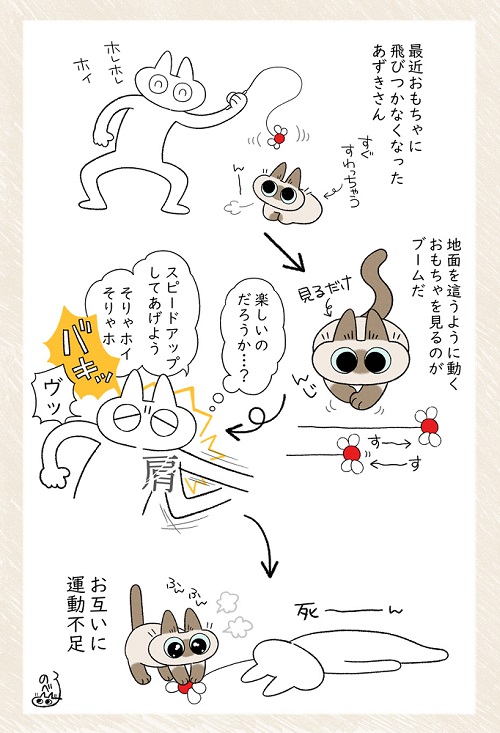 最近おもちゃに
飛びつかなくなった
あずきさん
ホレホレ
ホイ
すぐ
すわっちゃう
んー
地面を這うように動く
おもちゃを見るのが
ブームだ
見るだけ
んー
すー→
←ーす
楽しいの
だろうか…?
スピードアップ
してあげよう
そりゃホイ
そりゃホ
バキッ
ヴッ
肩
ふんふん
死ーーん
お互いに
運動不足